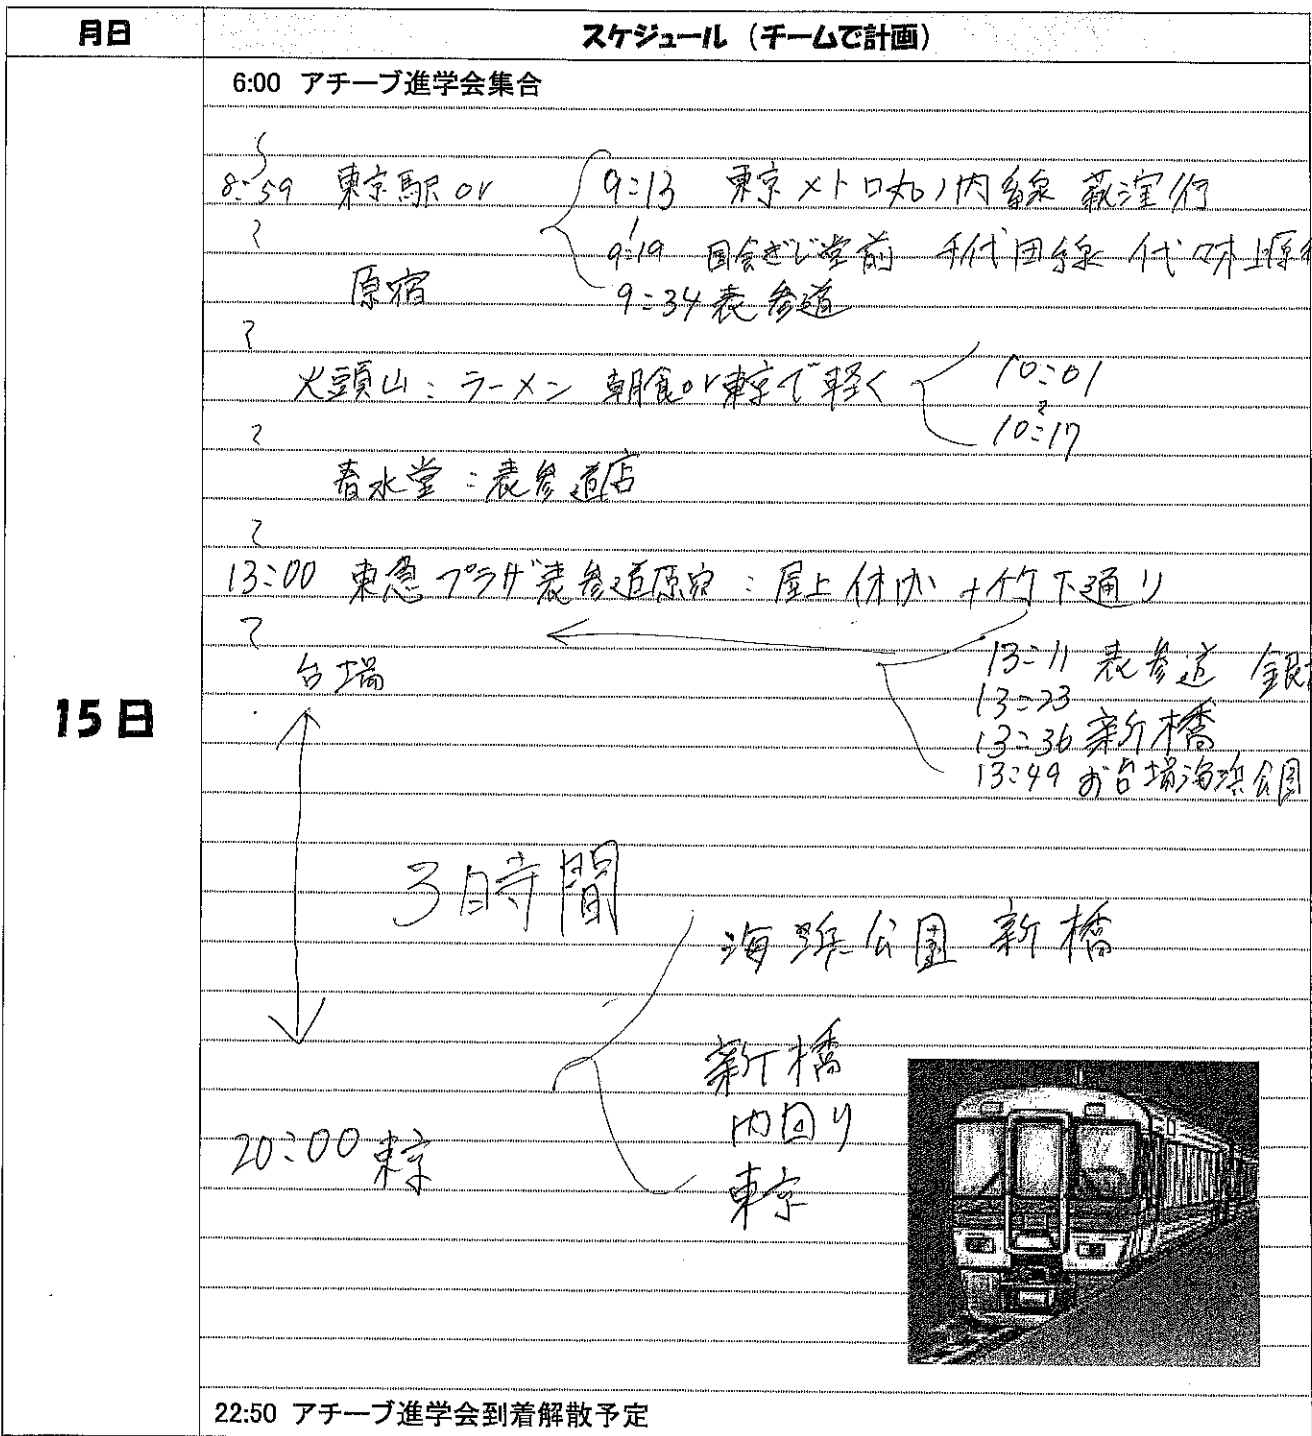 月日
スケジュール（チームで計画）
15日
6:00 アチーブ進学会集合
8:59 東京駅 or
9:13 東京メトロ丸ノ内線
9:19 国会ぎじ堂前 千代田線 代々木上原
原宿
9:34 表参道
ラーメン 朝食or東京で軽く
10:01
10:17
春水堂：表参道店
13:00 東急プラザ表参道原宿：屋上 +竹下通り
台場
13:11 表参道 銀
13:23
13:36 新橋
13:49 お台場海浜公園
3時間
海浜公園 新橋
新橋
内回り
20:00 東京
東京
22:50 アチーブ進学会到着解散予定